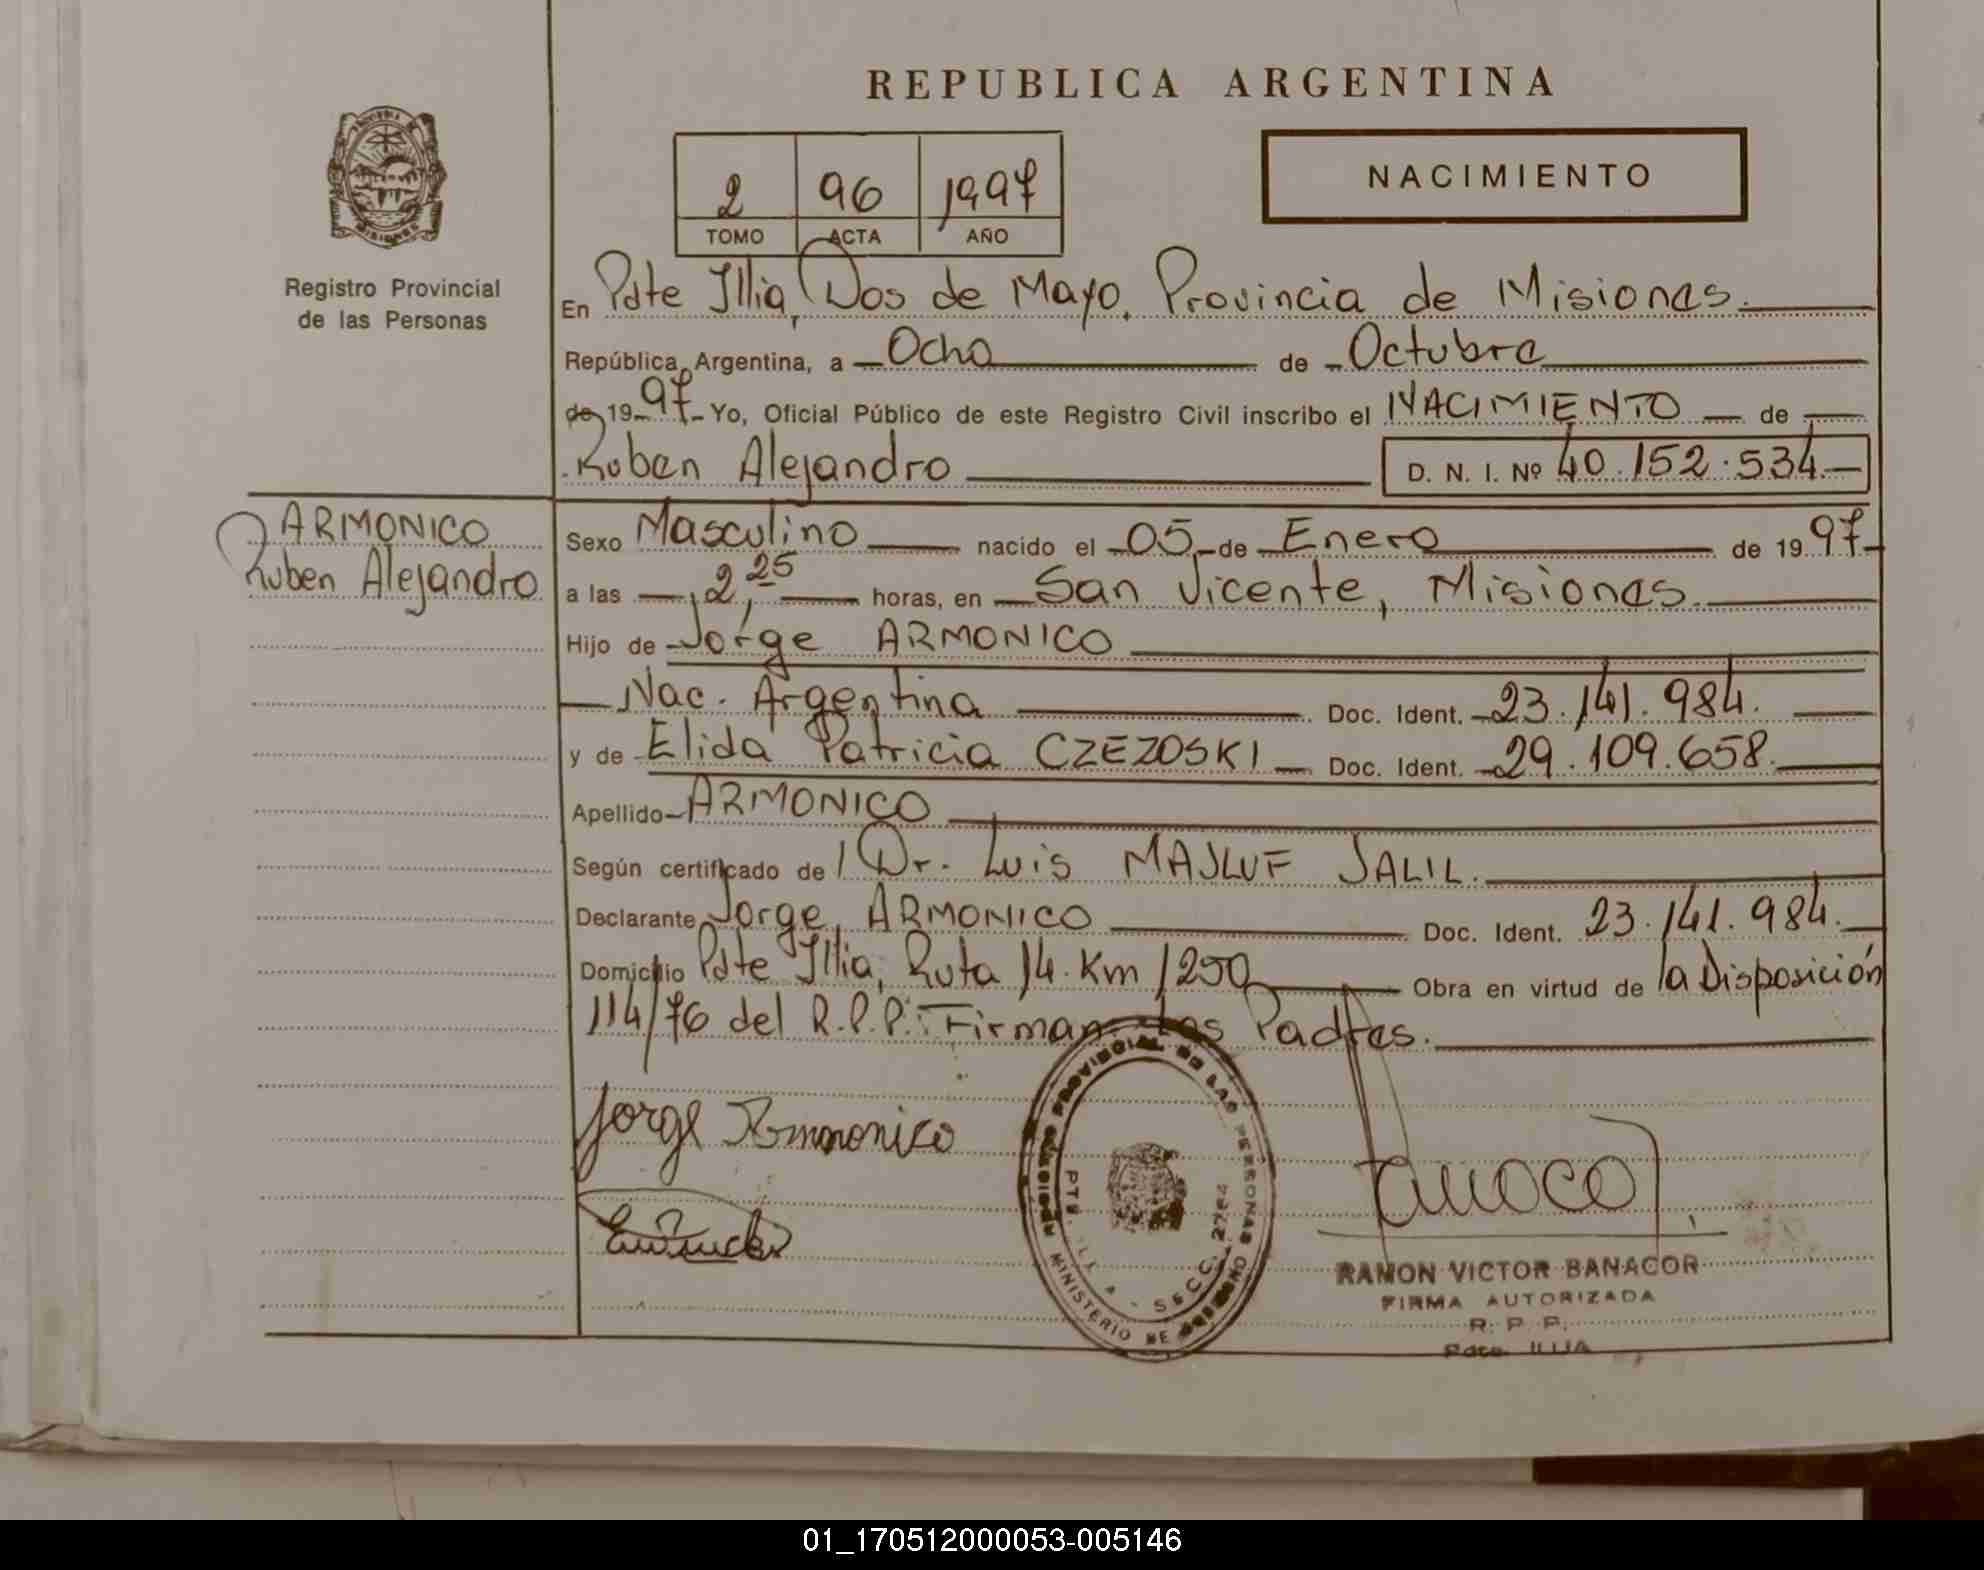 REPUBLICA ARGENTINA
NACIMIENTO
2 96 1997
TOMO ACTA AÑO
MISIONES
Registro Provincial
de las Personas
En Pdte Illia, Dos de Mayo, Provincia de Misiones.
República Argentina, a Ocho de Octubre
de 1997 Yo, Oficial Público de este Registro Civil inscribo el NACIMIENTO de
Ruben Alejandro D. N. I. Nº 40.152.534
ARMONICO
Ruben Alejandro
Sexo Masculino nacido el 05 de Enero de 1997
a las 2,25 horas, en San Vicente, Misiones.
Hijo de Jorge ARMONICO
Nac. Argentina Doc. Ident. 23.141.984.
y de Elida Patricia CZEZOSKI Doc. Ident. 29.109.658.
Apellido ARMONICO
Según certificado de Dr. Luis MAJLUF JALIL.
Declarante Jorge ARMONICO Doc. Ident. 23.141.984.
Domicilio Pdte Illia, Ruta 14 Km 1250 Obra en virtud de la Disposición
114/76 del R.P.P. Firman Los Padres.
Jorge Armonico
REGISTRO PROVINCIAL DE LAS PERSONAS
MINISTERIO DE GOBIERNO
PTE. ILLIA - SECC. 2764
RAMON VICTOR BANACOR
FIRMA AUTORIZADA
R. P. P.
Pdte. ILLIA
01_170512000053-005146